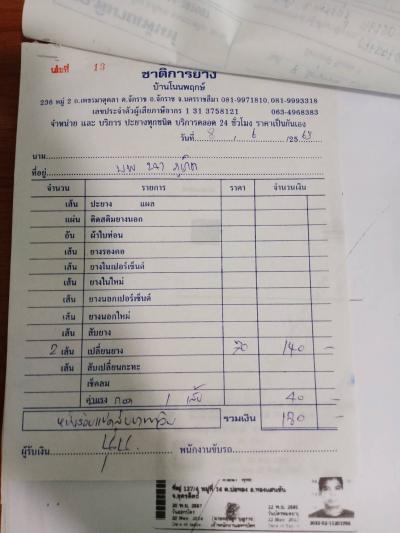 เล่มที่ 13
ชาติการยาง
บ้านโนนพฤกษ์
236 หมู่ 2 ถ.เพชรมาตุคลา ต.จักราช อ.จักราช จ.นครราชสีมา 081-9971810, 081-9993318
เลขประจำตัวผู้เสียภาษีอากร 1 31 3758121 063-4968383
จำหน่าย และ บริการ ปะยางทุกชนิด บริการตลอด 24 ชั่วโมง ราคาเป็นกันเอง
วันที่ 8 / 6 / 2565
นาม
ที่อยู่
จำนวน รายการ ราคา จำนวนเงิน
เส้น ปะยาง แผล
แผ่น ติดสติมยางนอก
อัน ผ้าใบท่อน
เส้น ยางรองคอ
เส้น ยางในเปอร์เซ็นต์
เส้น ยางในใหม่
เส้น ยางนอกเปอร์เซ็นต์
เส้น ยางนอกใหม่
เส้น สับยาง
2 เส้น เปลี่ยนยาง 70 140 -
เส้น สับเปลี่ยนกะทะ
เช็คลม
ค่าแรง ถอด 1 เส้น 40 -
หนึ่งร้อยแปดสิบบาทถ้วน รวมเงิน 180 -
ผู้รับเงิน พนักงานขับรถ
ที่อยู่ 137/4 หมู่ที่ 14 ต.บ่อทอง อ.ทองแสนขัน
จ.อุตรดิตถ์